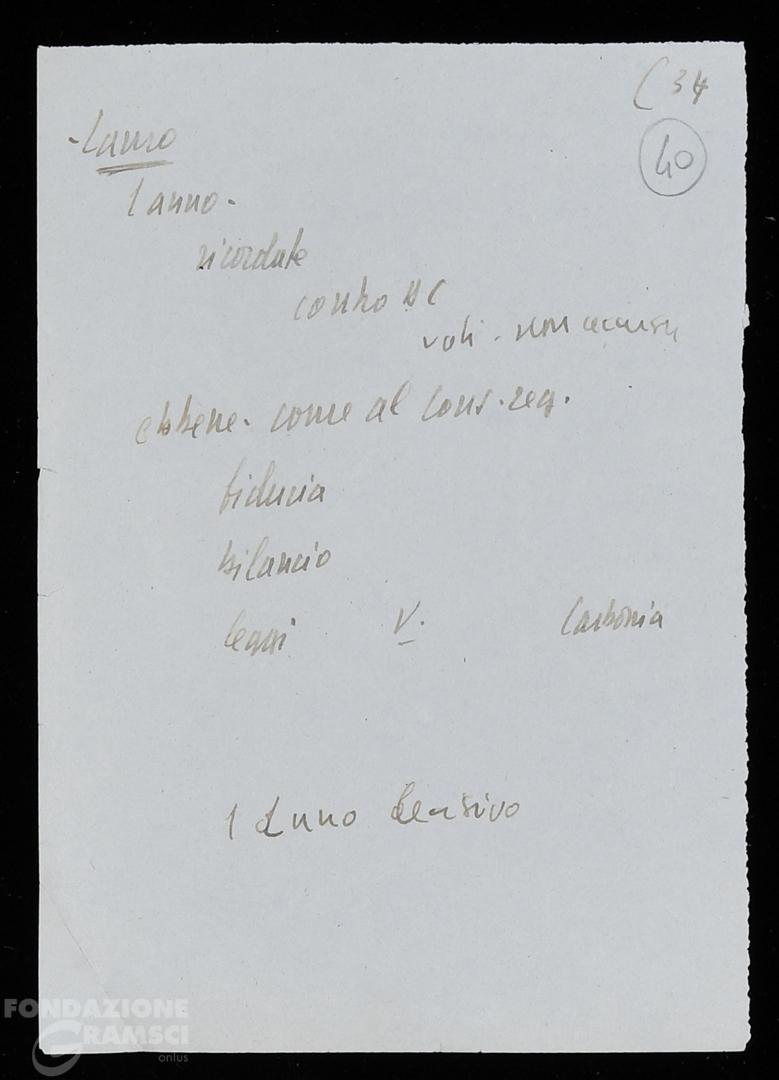 (34
40
- Lauro
1 anno -
ricordate
contro DC
voti - non
ebbene - come al Cons. reg.
fiducia
bilancio
leggi V. Carbonia
1 anno decisivo
FONDAZIONE
GRAMSCI
onlus